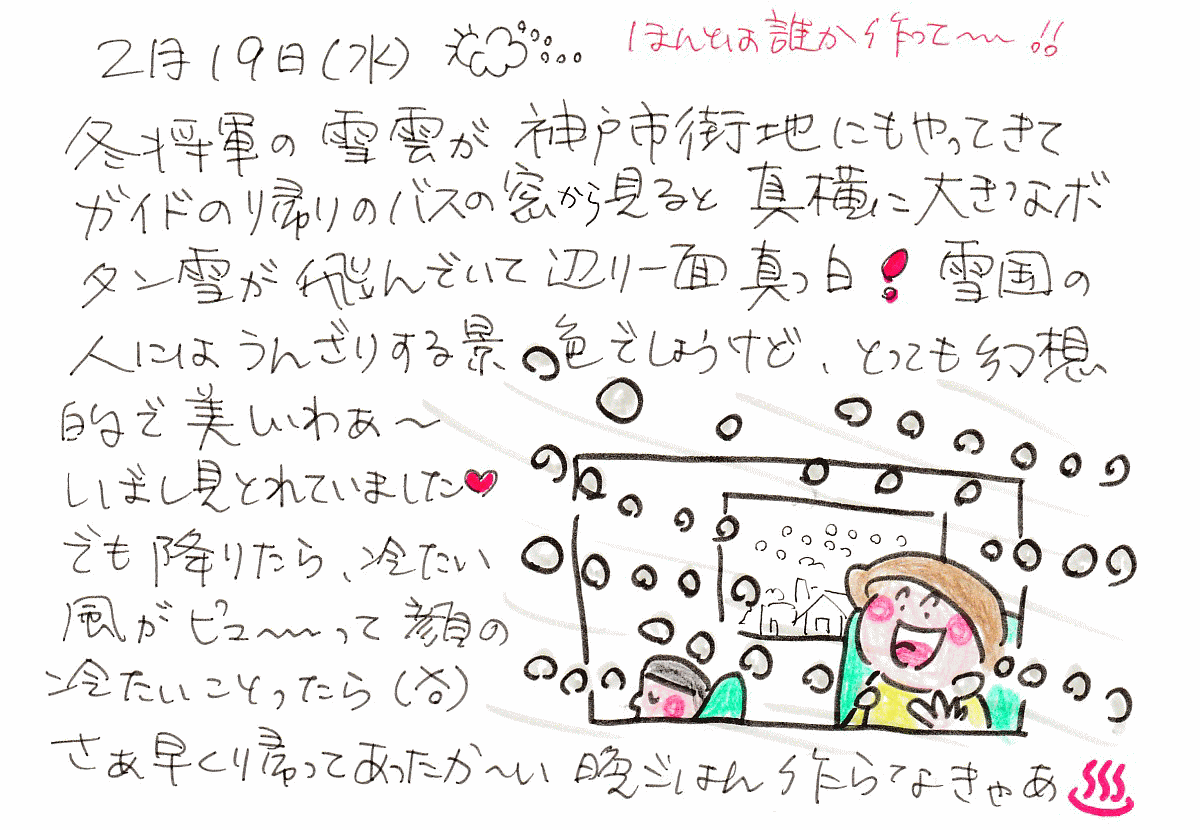 2月19日(水)
ほんとは誰か作って〜〜!!
冬将軍の雪雲が神戸市街地にもやってきて
ガイドの帰りのバスの窓から見ると真横に大きなボ
タン雪が飛んでいて辺り一面真っ白！雪国の
人にはうんざりする景色でしょうけど、とっても幻想
的で美しいわぁ〜
しばし見とれていました
でも降りたら、冷たい
風がピュ〜〜って顔の
冷たいことったら(
さぁ早く帰ってあったか〜い晩ごはん作らなきゃあ